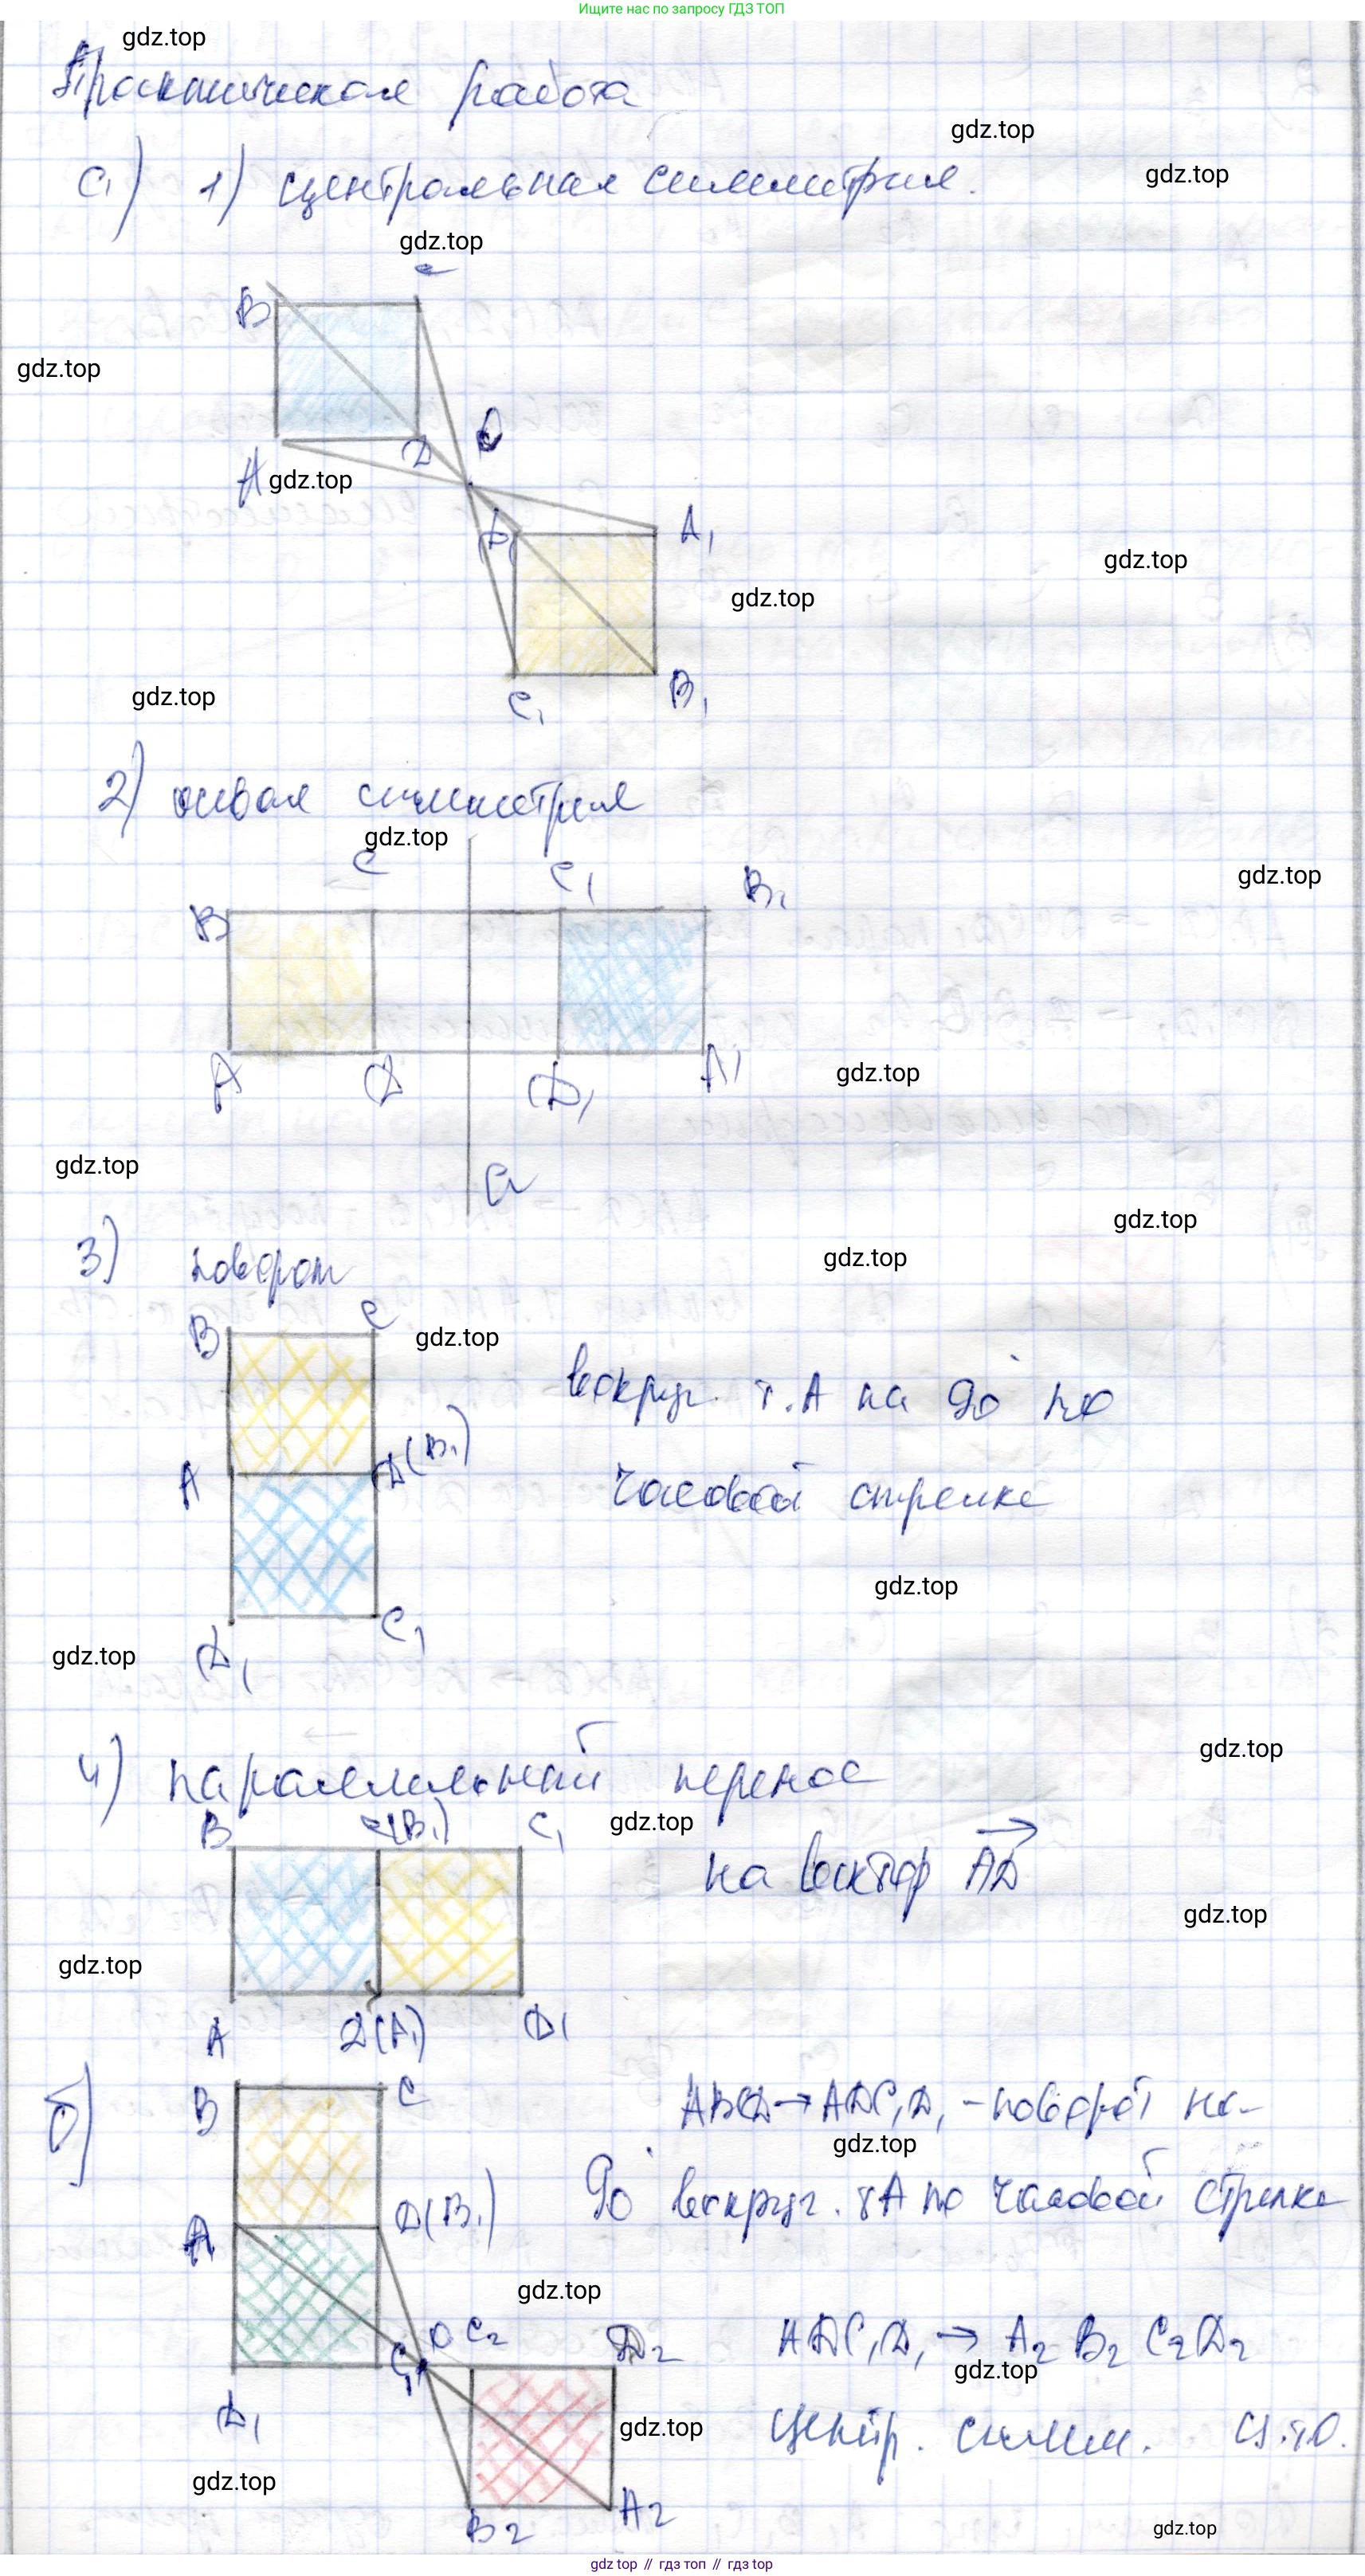 Ищите нас по запросу ГДЗ ТОП
gdz.top
Практическая работа
gdz.top
gdz.top
а) 1) центральная симметрия.
gdz.top
C
B
gdz.top
O
D
A gdz.top
D₁ A₁
gdz.top
gdz.top
gdz.top
C₁ B₁
2) осевая симметрия
gdz.top
C C₁ B₁
gdz.top
B
A D D₁ A₁
gdz.top
gdz.top
a
gdz.top
3) поворот
gdz.top
B C gdz.top
вокруг т. A на 90° по
A D(B₁)
часовой стрелке
gdz.top
D₁ C₁
gdz.top
4) параллельный перенос
gdz.top
B C(B₁) C₁ gdz.top
на вектор AD
gdz.top
gdz.top
A D(A₁) D₁
б) B C ABCD → ADC₁D₁ - поворот на
gdz.top
90° вокруг т A по часовой стрелке
A D(B₁)
gdz.top
C₁ O C₂ D₂ ADC₁D₁ → A₂ B₂ C₂ D₂
gdz.top
D₁ gdz.top центр. симм.
gdz.top
B₂ A₂
gdz.top
gdz top // гдз топ // гдз top